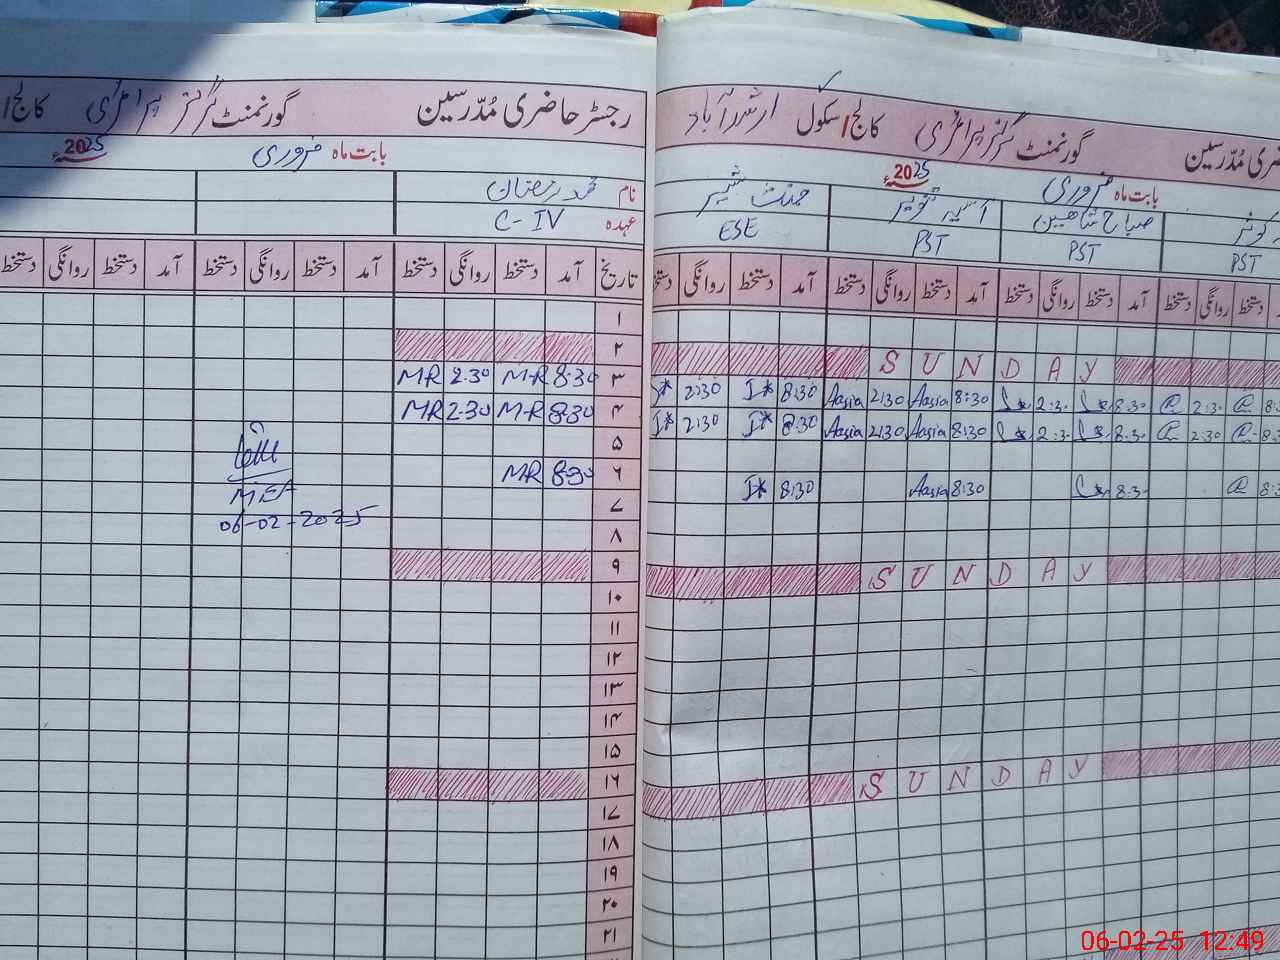 رجسٹر حاضری مُدرّسین گورنمنٹ گرلز پرائمری کالج/
بابت ماہ فروری 2025ء
نام محمد رمضان
عہدہ C-IV
تاریخ آمد دستخط روانگی دستخط آمد دستخط روانگی دستخط آمد دستخط روانگی دستخط
۱
۲
۳ 8:30 M-R 2:30 MR
۴ 8:30 M-R 2:30 MR
۵
۶ 8:30 MR
۷
MEA
06-02-2025
۸
۹
۱۰
۱۱
۱۲
۱۳
۱۴
۱۵
۱۶
۱۷
۱۸
۱۹
۲۰
۲۱
ضری مُدرّسین گورنمنٹ گرلز پرائمری کالج/سکول ارشد آباد
بابت ماہ فروری 2025ء
کوثر صباح شاہین آسیہ
PST PST PST ESE
دستخط روانگی دستخط آمد دستخط روانگی دستخط آمد دستخط روانگی دستخط آمد دستخط روانگی
SUNDAY
2:30 I* 8:30 Aasia 2:30 Aasia 8:30 2:30 8:30 2:30
2:30 I* 8:30 Aasia 2:30 Aasia 8:30 2:30 8:30 2:30
I* 8:30 Aasia 8:30 8:30
SUNDAY
SUNDAY
06-02-25 12:49